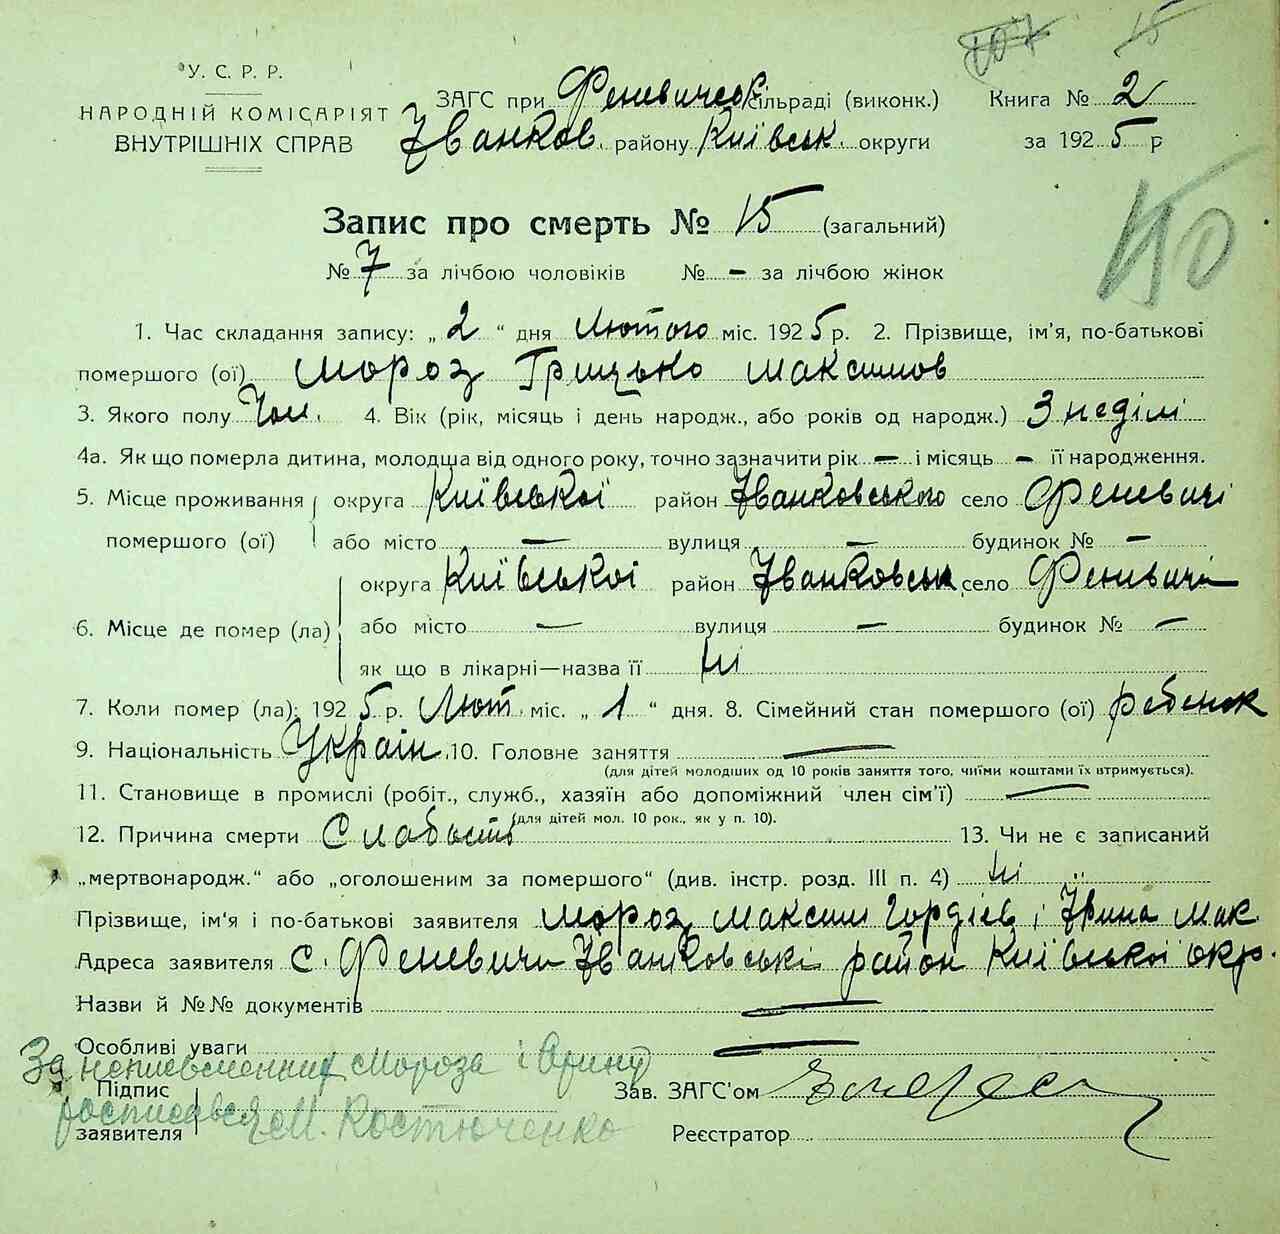 15
У. С. Р. Р.
НАРОДНІЙ КОМІСАРІЯТ
ВНУТРІШНІХ СПРАВ
ЗАГС при Феневичськ сільраді (виконк.)
Іванков. району Київськ. округи
Книга № 2
за 1925 р
150
Запис про смерть № 15 (загальний)
№ 7 за лічбою чоловіків № – за лічбою жінок
1. Час складання запису: „ 2 “ дня Лютого міс. 1925 р. 2. Прізвище, ім'я, по-батькові
помершого (ої) Мороз Грицько Максимов
3. Якого полу Чол. 4. Вік (рік, місяць і день народж., або років од народж.) 3 неділі
4а. Як що померла дитина, молодша від одного року, точно зазначити рік – і місяць – її народження.
5. Місце проживання округа Київської район Іванковського село Феневичі
помершого (ої) або місто – вулиця – будинок № –
округа Київської район Іванковськ. село Феневичі
6. Місце де помер (ла) або місто – вулиця – будинок № –
як що в лікарні—назва її Ні
7. Коли помер (ла): 1925 р. Лют. міс. „ 1 “ дня. 8. Сімейний стан помершого (ої) ребенок
9. Національність Україн. 10. Головне заняття –
(для дітей молодших од 10 років заняття того, чиїми коштами їх втримується).
11. Становище в промислі (робіт., служб., хазяїн або допоміжний член сім'ї) –
(для дітей мол. 10 рок., як у п. 10).
12. Причина смерти Слабость 13. Чи не є записаний
„мертвонародж.“ або „оголошеним за помершого“ (див. інстр. розд. III п. 4) Ні
Прізвище, ім'я і по-батькові заявителя Мороз Максим Гордіев і Ірина Мак
Адреса заявителя с. Феневичи Іванковські район Київської окр.
Назви й №№ документів –
Особливі уваги –
За неписьменних Мороза і Орину
Підпис
заявителя
росписався М. Костюченко
Зав. ЗАГС'ом
Реєстратор